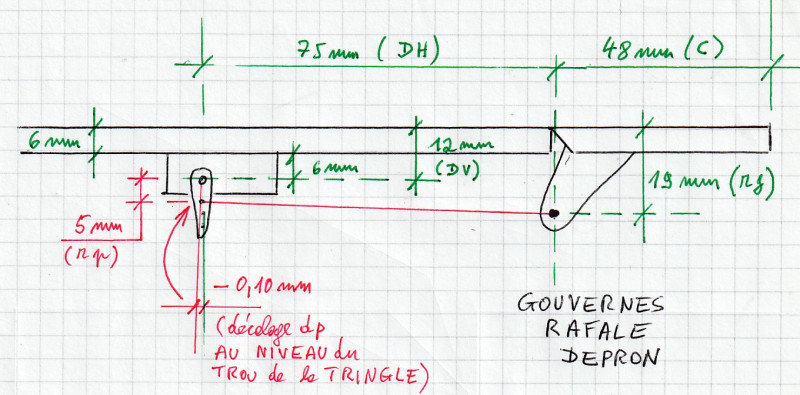 75 mm (DH)
48 mm (C)
6 mm
12 mm
(DV)
6 mm
19 mm (rg)
5 mm
(rp)
- 0,10 mm
(décalage dp
AU NIVEAU du
TROU de la TRINGLE)
GOUVERNES
RAFALE
DEPRON